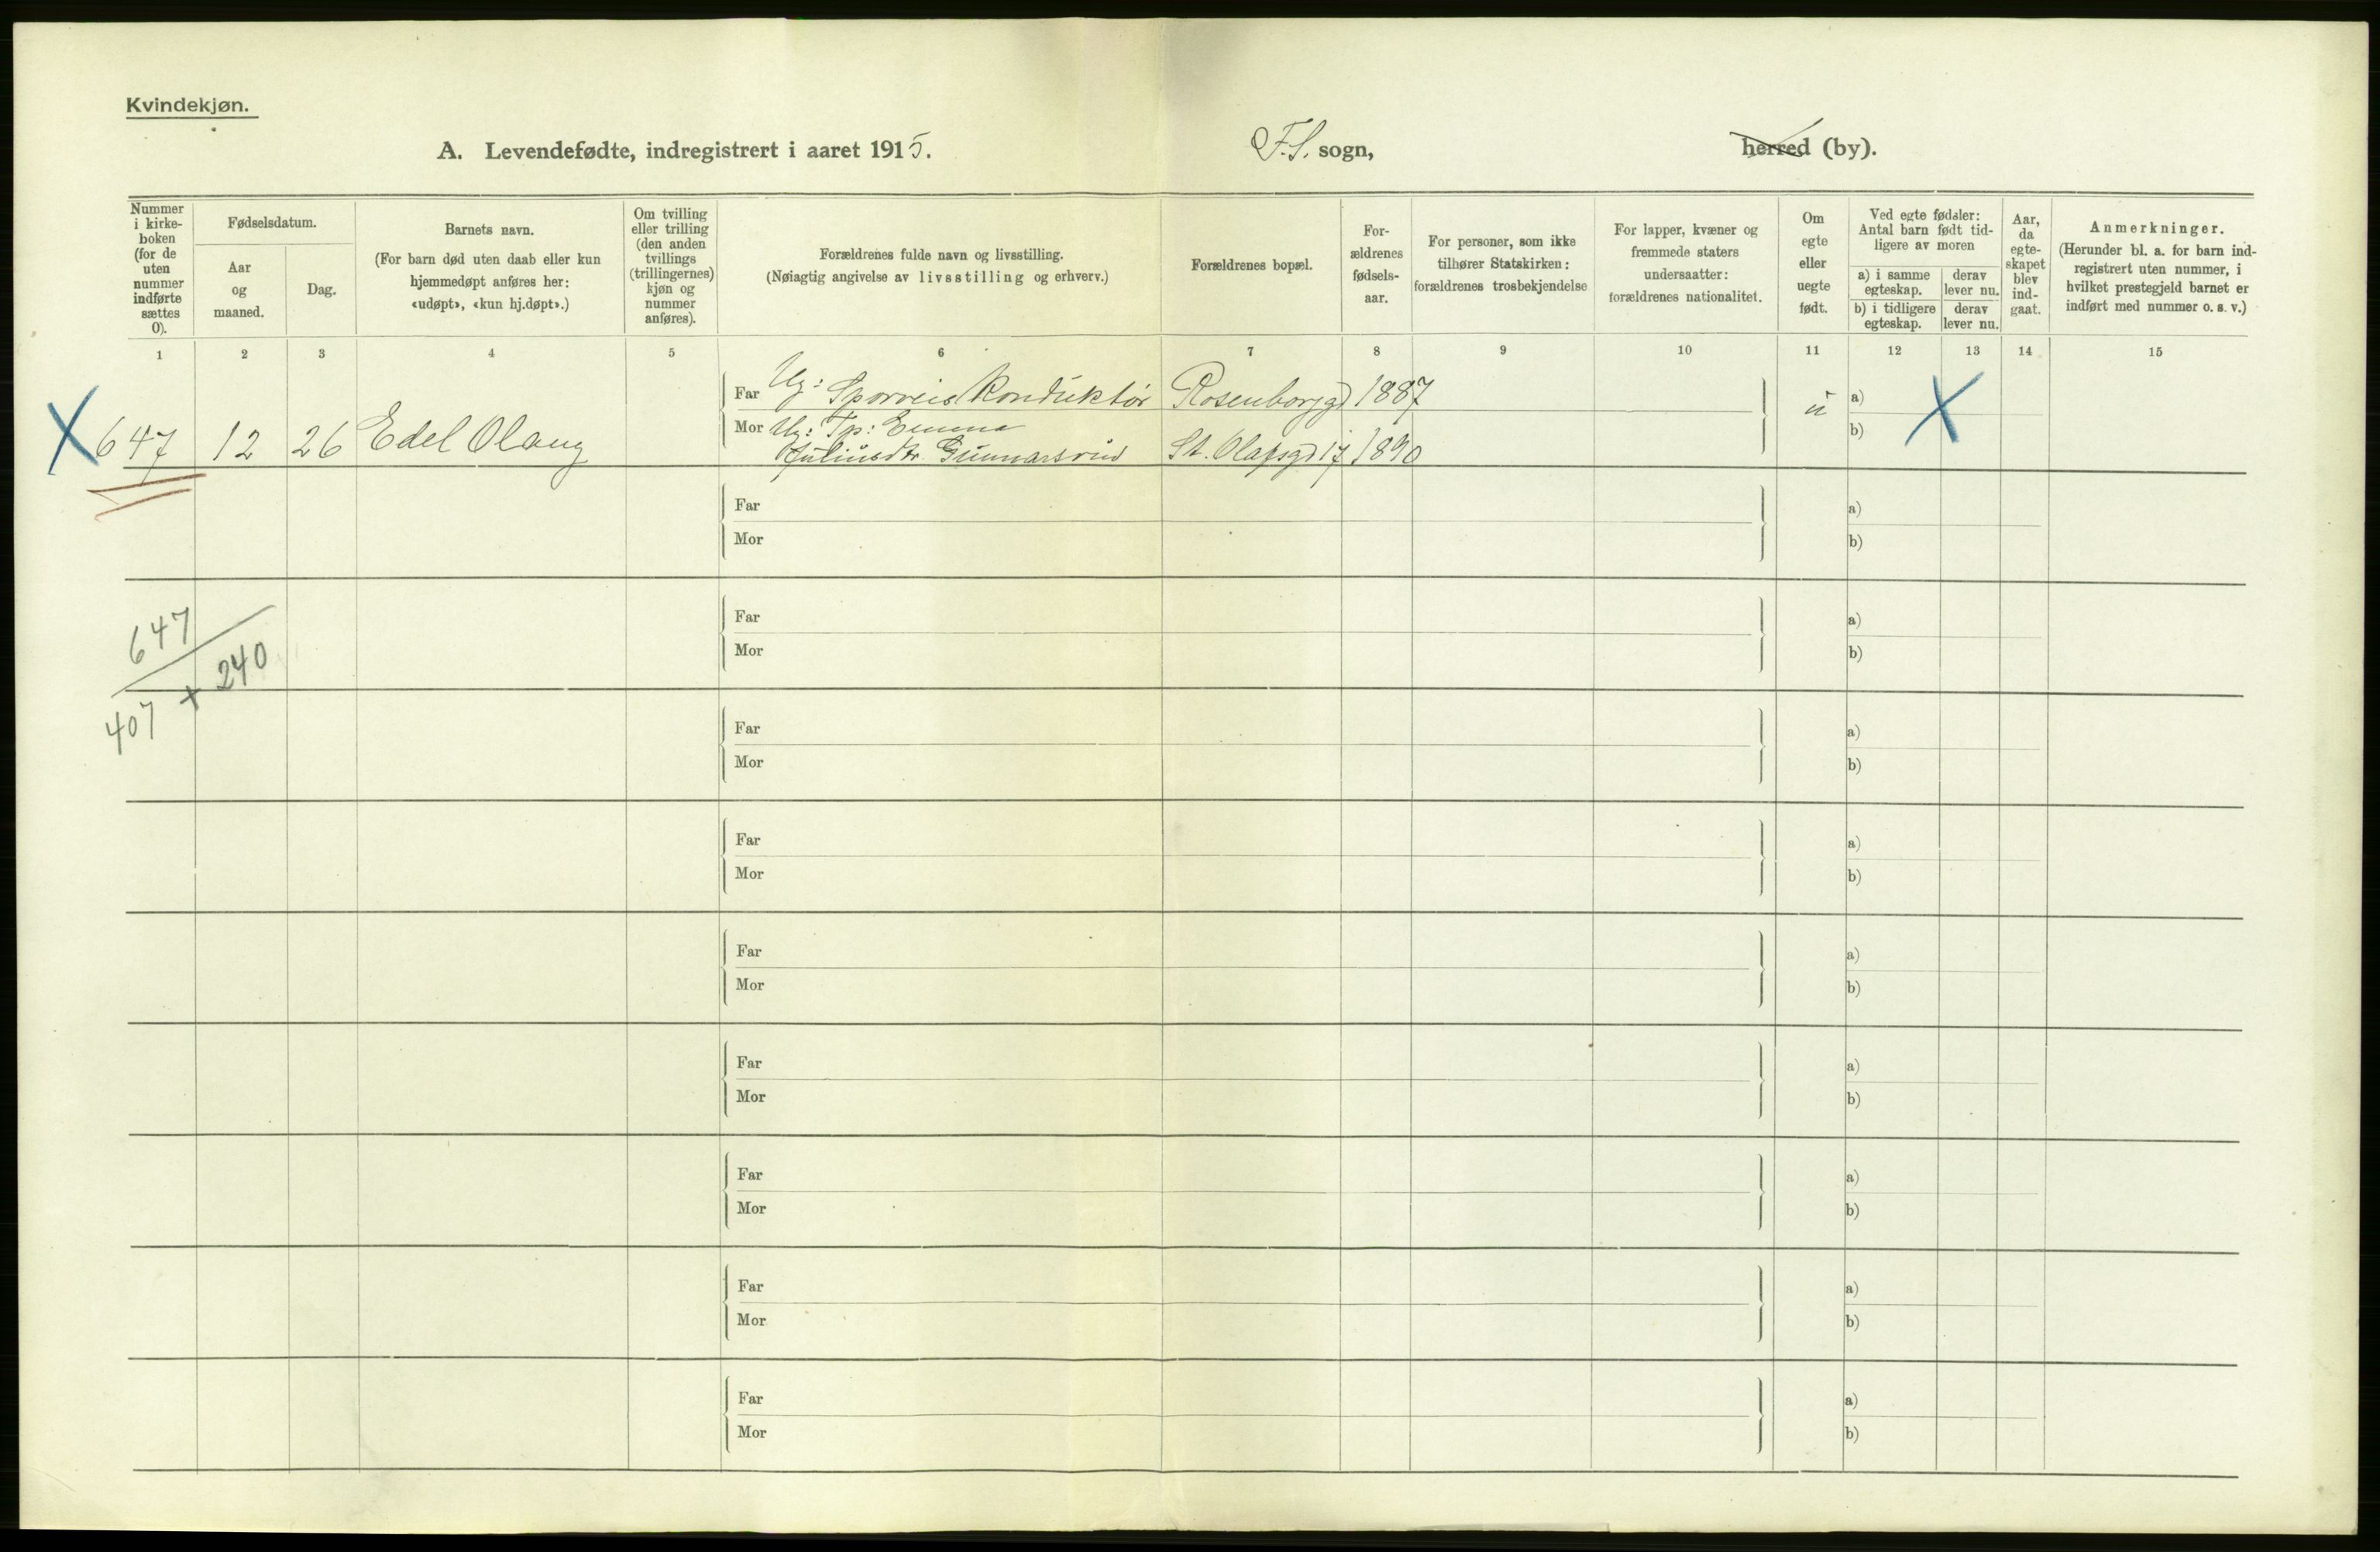 Kvindekjøn.
A. Levendefødte, indregistrert i aaret 1915.
F.S. sogn,
herred (by).
Nummer
i kirke-
boken
(for de
uten
nummer
indførte
sættes
0).
Fødselsdatum.
Aar
og
maaned.
Dag.
Barnets navn.
(For barn død uten daab eller kun
hjemmedøpt anføres her:
«udøpt», «kun hj.døpt».)
Om tvilling
eller trilling
(den anden
tvillings
(trillingernes)
kjøn og
nummer
anføres).
Forældrenes fulde navn og livsstilling.
(Nøiagtig angivelse av livsstilling og erhverv.)
Forældrenes bopæl.
For-
ældrenes
fødsels-
aar.
For personer, som ikke
tilhører Statskirken:
forældrenes trosbekjendelse
For lapper, kvæner og
fremmede staters
undersaatter:
forældrenes nationalitet.
Om
egte
eller
uegte
født.
Ved egte fødsler:
Antal barn født tid-
ligere av moren
a) i samme
egteskap.
derav
lever nu.
b) i tidligere
egteskap.
derav
lever nu.
Aar,
da
egte-
skapet
blev
ind-
gaat.
Anmerkninger.
(Herunder bl. a. for barn ind-
registrert uten nummer, i
hvilket prestegjeld barnet er
indført med nummer o. s. v.)
1 2 3 4 5 6 7 8 9 10 11 12 13 14 15
Far Ug: Sporveis Konduktør Rosenborggd 1887 u a)
X 647 12 26 Edel Olaug Mor Ug: Tp: Emma b) X
Juliusdtr. Gunnarsrud St. Olafsgd 17 1890
Far a)
Mor b)
647
Far a)
240
Mor b)
+
407
Far a)
Mor b)
Far a)
Mor b)
Far a)
Mor b)
Far a)
Mor b)
Far a)
Mor b)
Far a)
Mor b)
Far a)
Mor b)